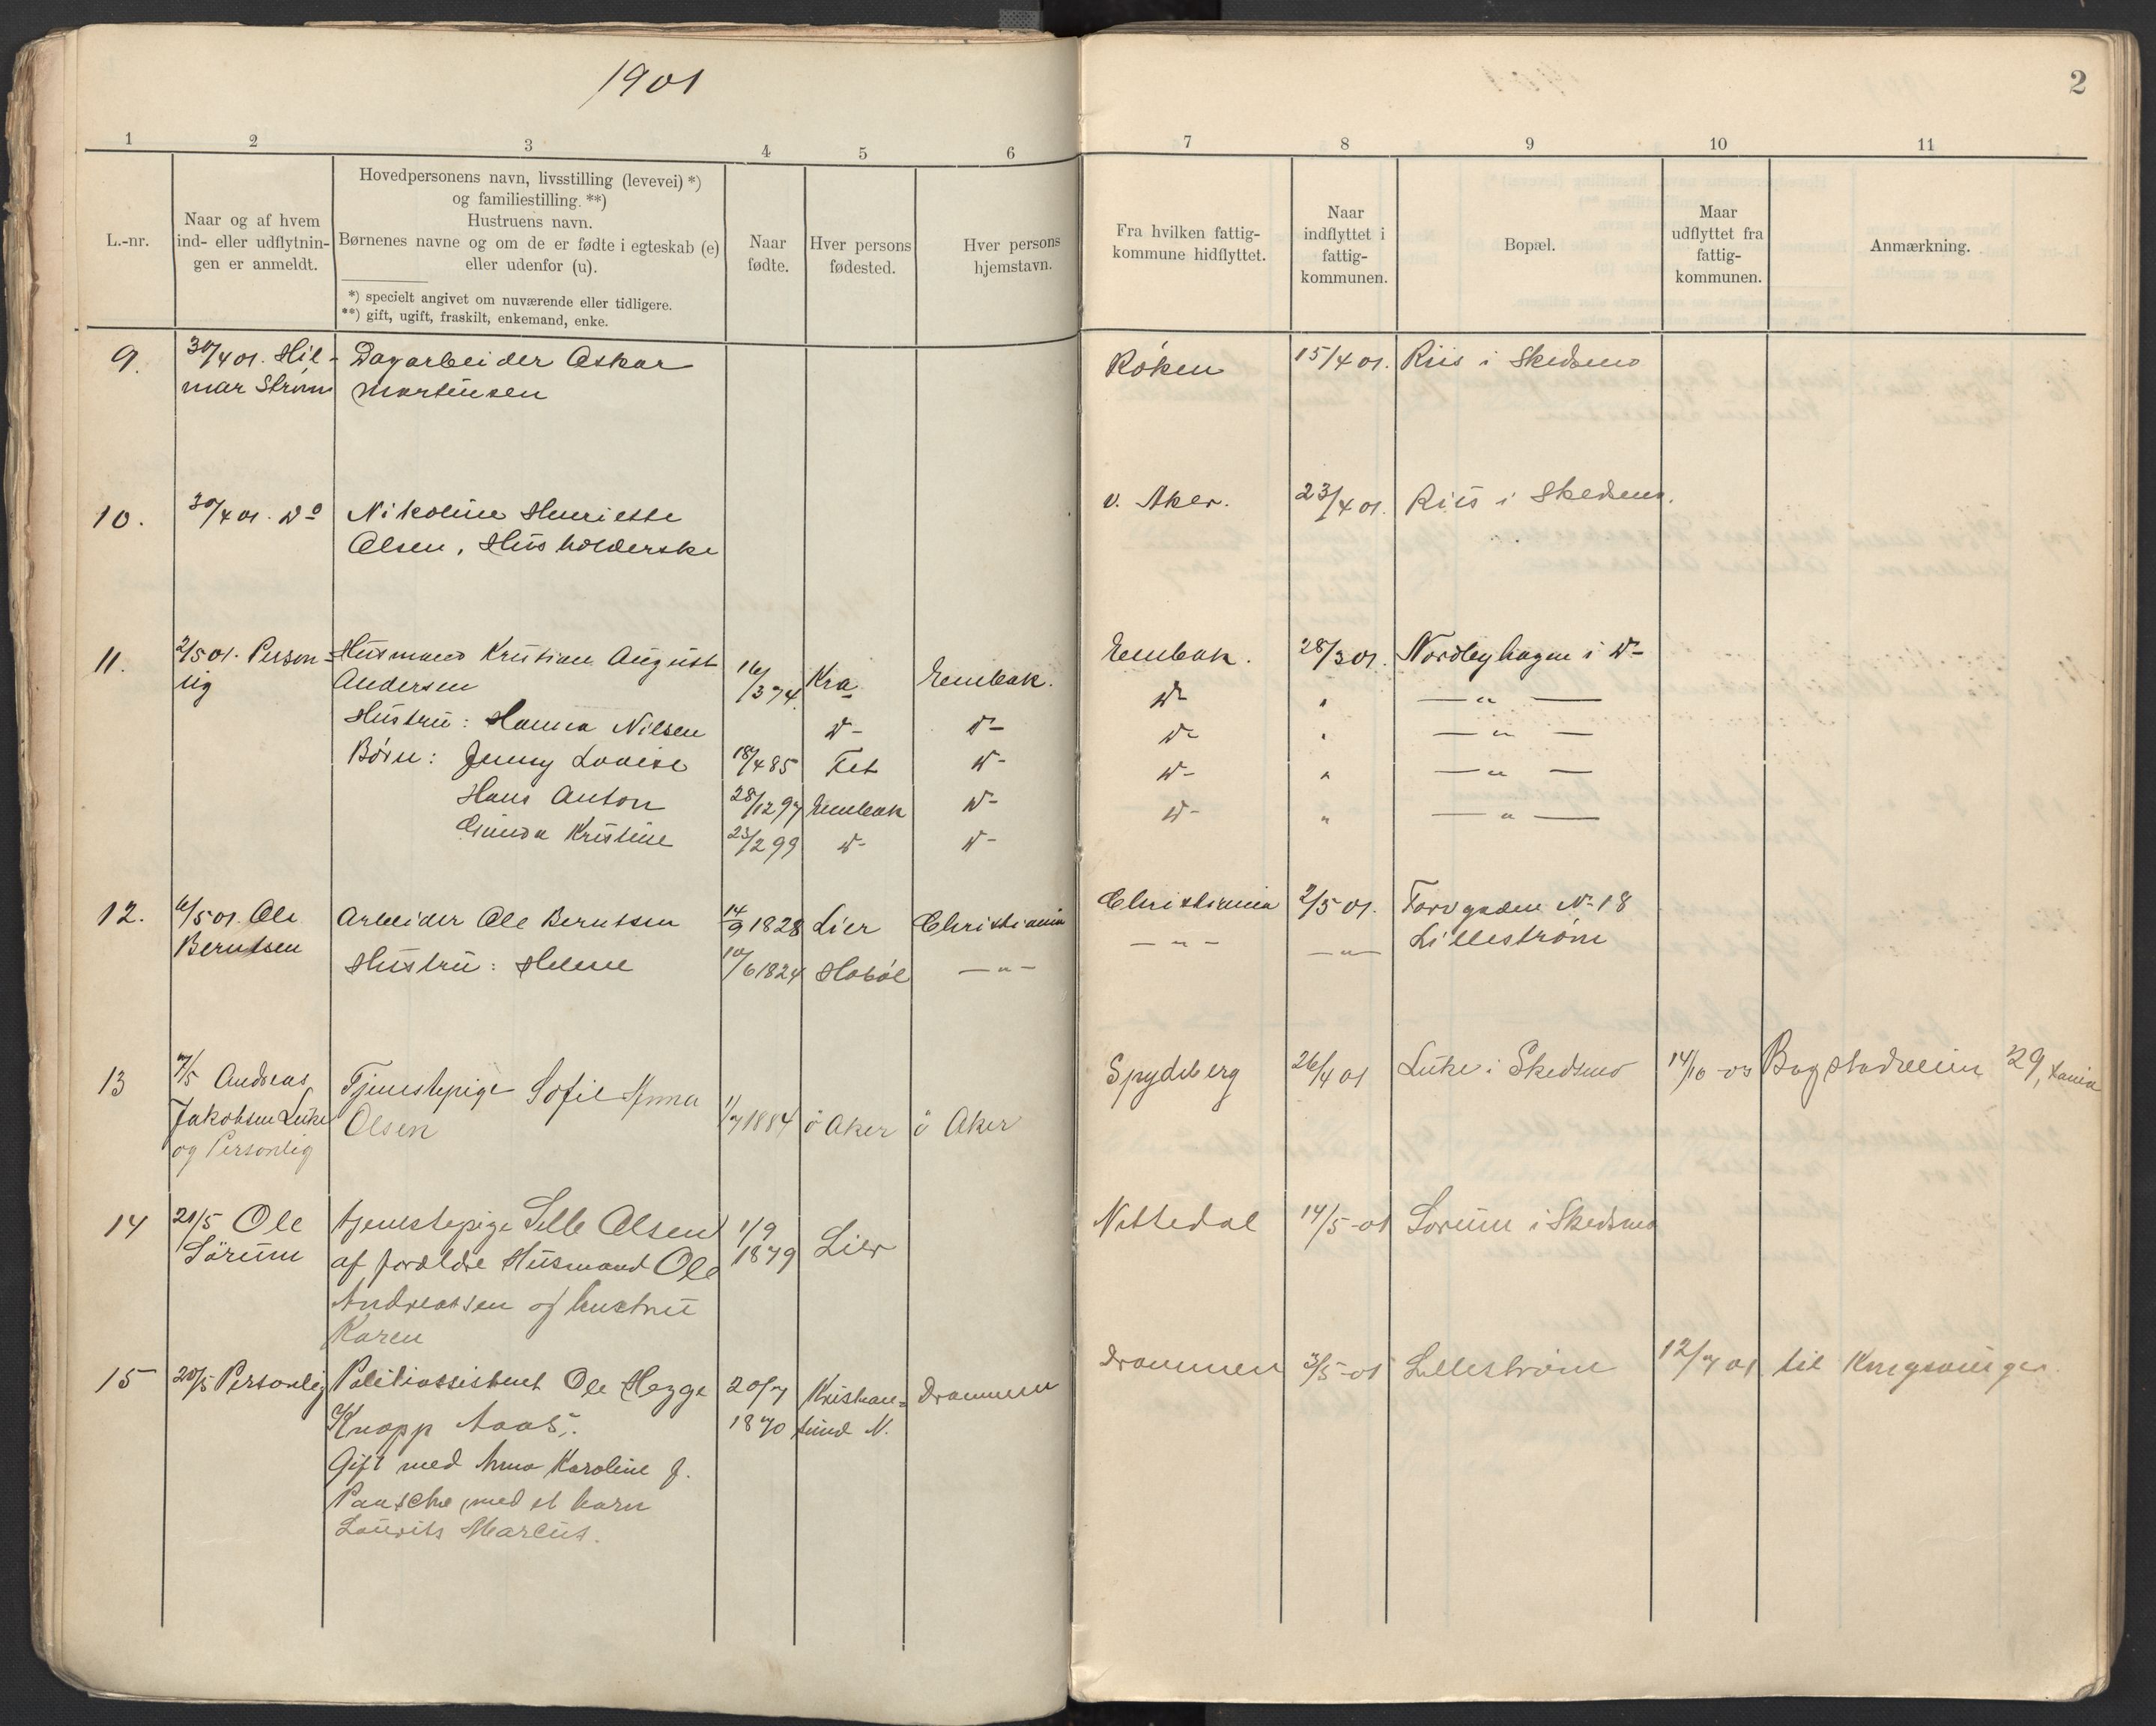 1901
2
1 2 3 4 5 6 7 8 9 10 11
L.-nr.
Naar og af hvem
ind- eller udflytnin-
gen er anmeldt.
Hovedpersonens navn, livsstilling (levevei) *)
og familiestilling. **)
Hustruens navn.
Børnenes navne og om de er fødte i egteskab (e)
eller udenfor (u).
*) specielt angivet om nuværende eller tidligere.
**) gift, ugift, fraskilt, enkemand, enke.
Naar
fødte.
Hver persons
fødested.
Hver persons
hjemstavn.
Fra hvilken fattig-
kommune hidflyttet.
Naar
indflyttet i
fattig-
kommunen.
Bopæl.
Maar
udflyttet fra
fattig-
kommunen.
Anmærkning.
9. 30/4 01. Hil- Dagarbeider Oskar Røken 15/4 01. Riis i Skedsmo
mar Strøm Martinsen
10. 30/4 01. Do Nikoline Henriette v. Aker. 23/4 01. Riis i Skedsmo.
Olsen, Husholderske
11. 2/5 01. Person- Husmand Kristian August 16/3 74 Kra Enebak. Enebak. 28/3 01. Nordbyhagen i Do
lig Andersen
Hustru: Hanna Nilsen Do Do Do " — " —
Børn: Jenny Lovise 18/4 85 Fet Do Do " — " —
Hans Anton 28/12 97 Enebak Do Do " — " —
Gunda Kristine 23/2 99 Do Do Do " — " —
12. 6/5 01. Ole Arbeider Ole Berntsen 14/9 1828 Lier Christiania Christiania 2/5 01. Torvgaden No 18
Berntsen Lilleström
Hustru: Helene 10/6 1824 Hobøl — " — — " — — " —
13 7/5 Andreas Tjenestepige Sofie Anna 1/7 1884 ö Aker ö Aker Spydeberg 26/4 01 Luke i Skedsmo 14/10 -03 Bogstadveien 29, Kania
Jakobsen Luke Olsen
og Personlig
14 21/5 Ole tjenestepige Olsen 1/9 Lier Nittedal 14/5 -01 Sorum i Skedsmo
Sörum af foreldre Husmand Ole 1879
Andreassen og hustru
Karen
15 20/5 Personlig Politiassistent Ole Hegge 20/7 Kristian- Drammen Drammen 3/5 -01 Lilleström 12/7 01 til Kongsvinger
Knopp Aaas. 1870 sund N.
Gift med Anna Karoline J.
Paasche, med et barn
Laurits Marcus.